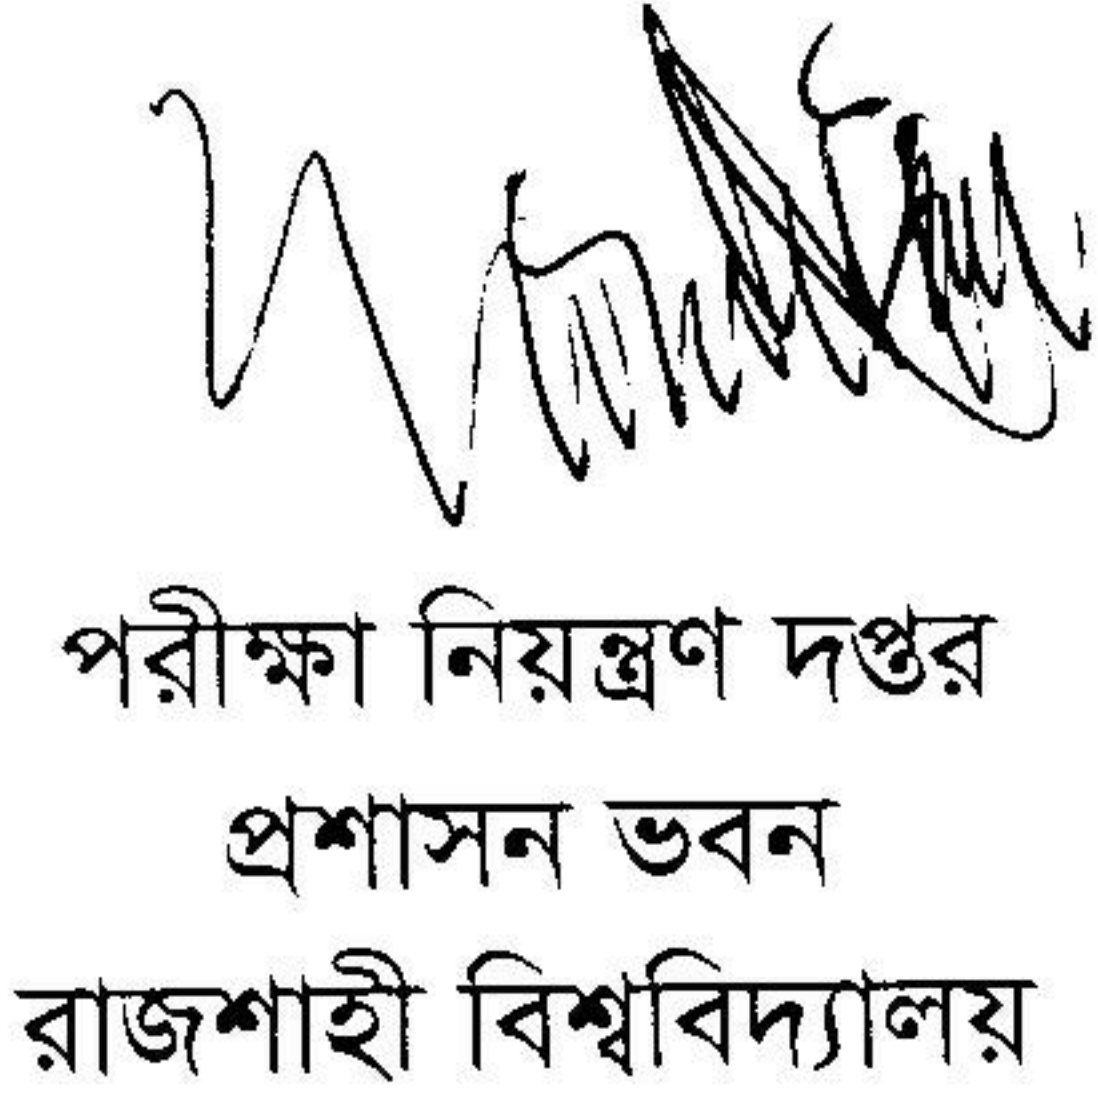 পরীক্ষা নিয়ন্ত্রণ দপ্তর
প্রশাসন ভবন
রাজশাহী বিশ্ববিদ্যালয়